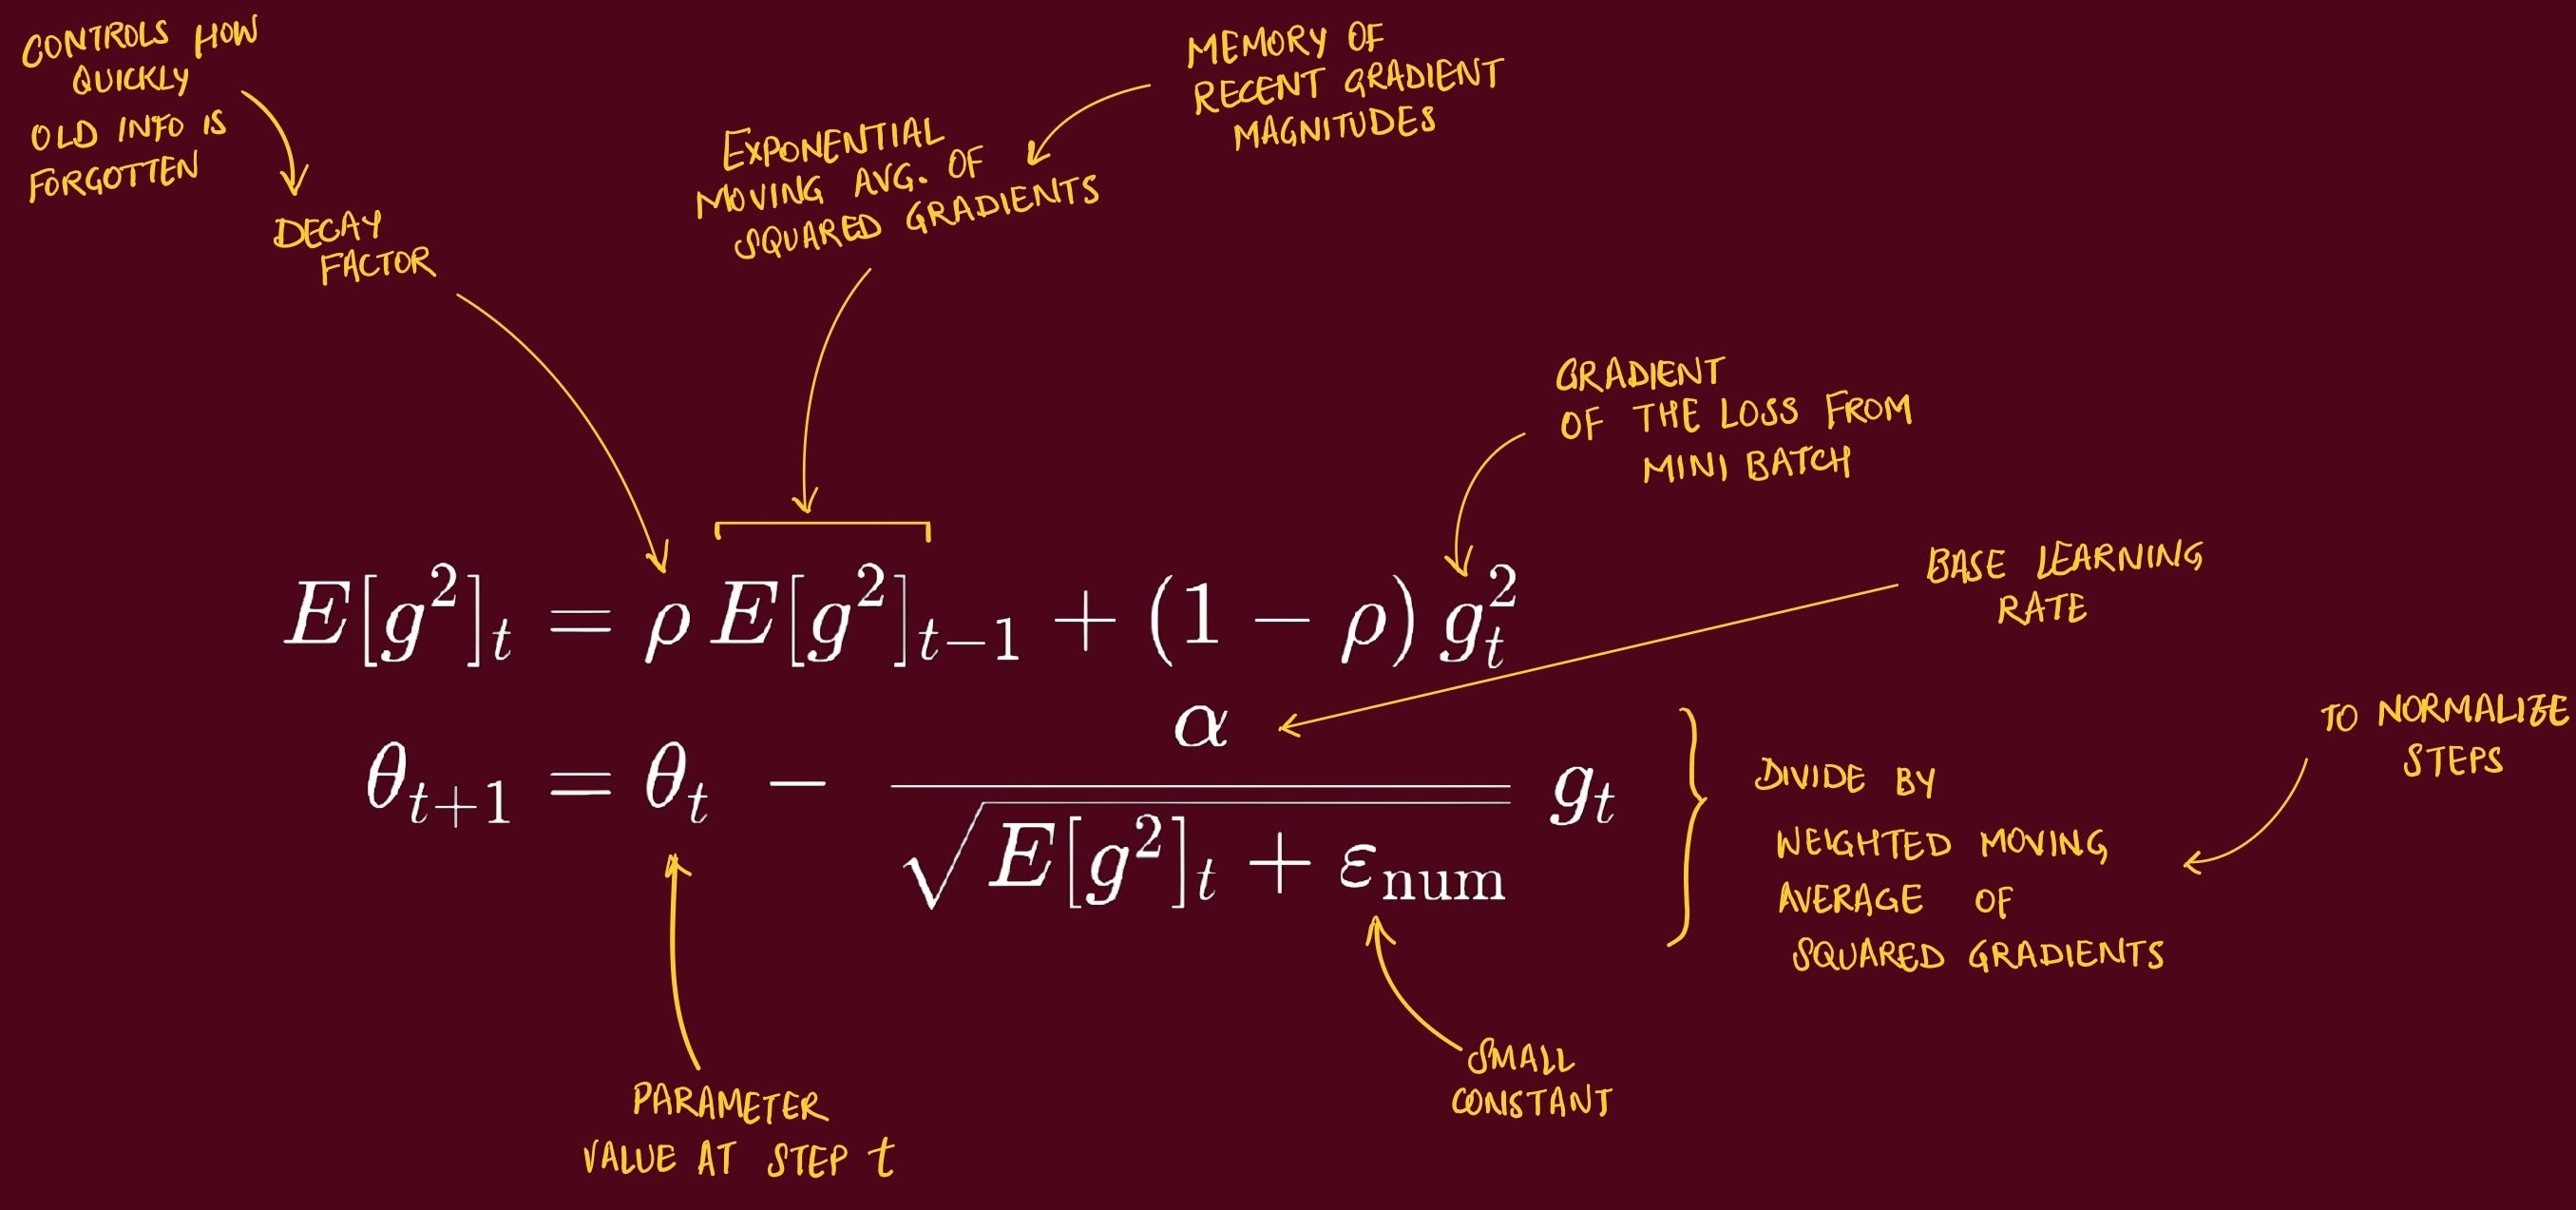 CONTROLS HOW
QUICKLY
OLD INFO IS
FORGOTTEN
DECAY
FACTOR
EXPONENTIAL
MOVING AVG. OF
SQUARED GRADIENTS
MEMORY OF
RECENT GRADIENT
MAGNITUDES
GRADIENT
OF THE LOSS FROM
MINI BATCH
BASE LEARNING
RATE
E[g²]ₜ = ρ E[g²]ₜ₋₁ + (1 − ρ) gₜ²
θₜ₊₁ = θₜ − α / √(E[g²]ₜ + ε_num) gₜ
DIVIDE BY
WEIGHTED MOVING
AVERAGE OF
SQUARED GRADIENTS
TO NORMALIZE
STEPS
PARAMETER
VALUE AT STEP t
SMALL
CONSTANT